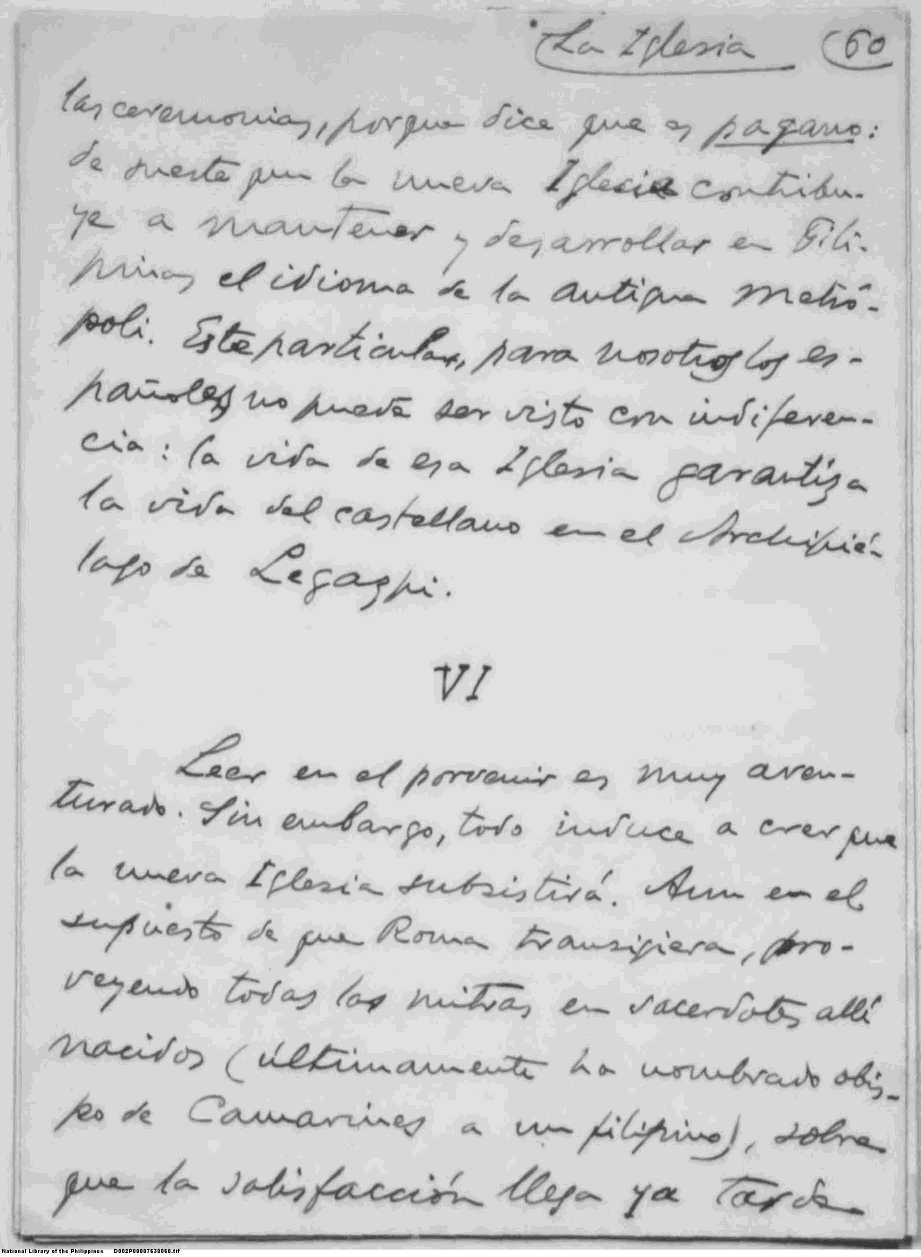 La Iglesia (60
las ceremonias, porque dice que es pagano:
de suerte que la nueva Iglesia contribu-
ye a mantener y desarrollar en Fili-
pinas el idioma de la antigua metró-
poli. Este particular, para nosotros los es-
pañoles, no puede ser visto con indiferen-
cia: la vida de esa Iglesia garantiza
la vida del castellano en el Archipié-
lago de Legazpi.
VI
Leer en el porvenir es muy aven-
turado. Sin embargo, todo induce a creer que
la nueva Iglesia subsistirá. Aun en el
supuesto de que Roma transigiera, pro-
veyendo todas las mitras en sacerdotes allí
nacidos (últimamente ha nombrado obis-
po de Camarines a un filipino), sobre
que la satisfacción llega ya tarde
National Library of the Philippines D002P00007630060.tif